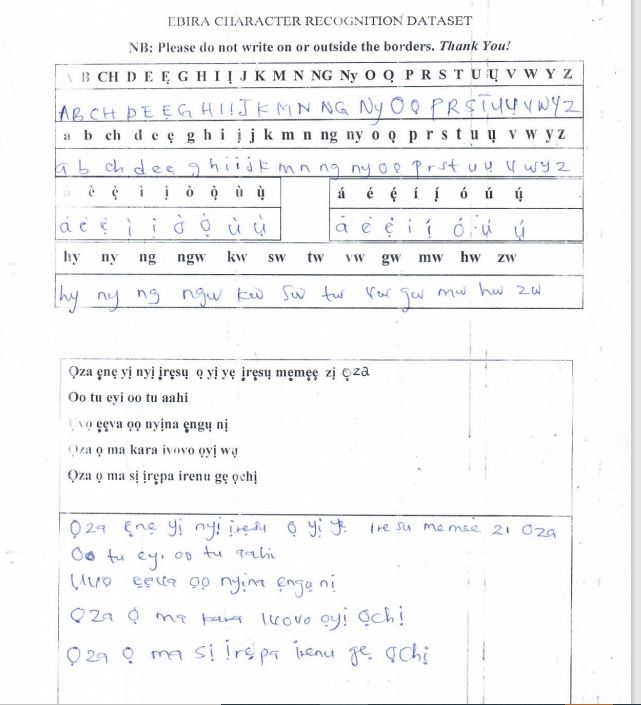 EBIRA CHARACTER RECOGNITION DATASET
NB: Please do not write on or outside the borders. Thank You!
A B CH D E Ẹ G H I Ị J K M N NG Ny O Ọ P R S T U Ụ V W Y Z
A B CH D E Ẹ G H I Ị J K M N NG Ny O Ọ P R S T U Ụ V W Y Z
a b ch d e ẹ g h i ị j k m n ng ny o ọ p r s t u ụ v w y z
a b ch d e ẹ g h i ị j k m n ng ny o ọ p r s t u ụ v w y z
è ẹ̀ ì ị̀ ò ọ̀ ù ụ̀ á é ẹ́ í ị́ ó ú ụ́
à è ẹ̀ ì ị̀ ò ọ̀ ù ụ̀ á é ẹ́ í ị́ ó ú ụ́
hy ny ng ngw kw sw tw vw gw mw hw zw
hy ny ng ngw kw sw tw vw gw mw hw zw
Ọza ẹnẹ yị nyị ịrẹsụ ọ yị yẹ ịrẹsụ mẹmẹẹ zị ọza
Oo tu eyi oo tu aahi
vọ ẹẹva ọọ nyịna ẹngụ nị
Ọza ọ ma kara ivovo ọyị wụ
Ọza ọ ma sị ịrẹpa irenu gẹ ọchị
Ọza ẹnẹ yị nyị ịrẹsu Ọ yị yẹ iresu memee zi Oza
Oo tu eyi oo tu aahi
ẹẹva ọọ nyịna ẹngụ nị
Ọza Ọ ma kara ivovo ọyị Ọchị
Ọza Ọ ma sị ịrẹpa irenu gẹ Ọchị